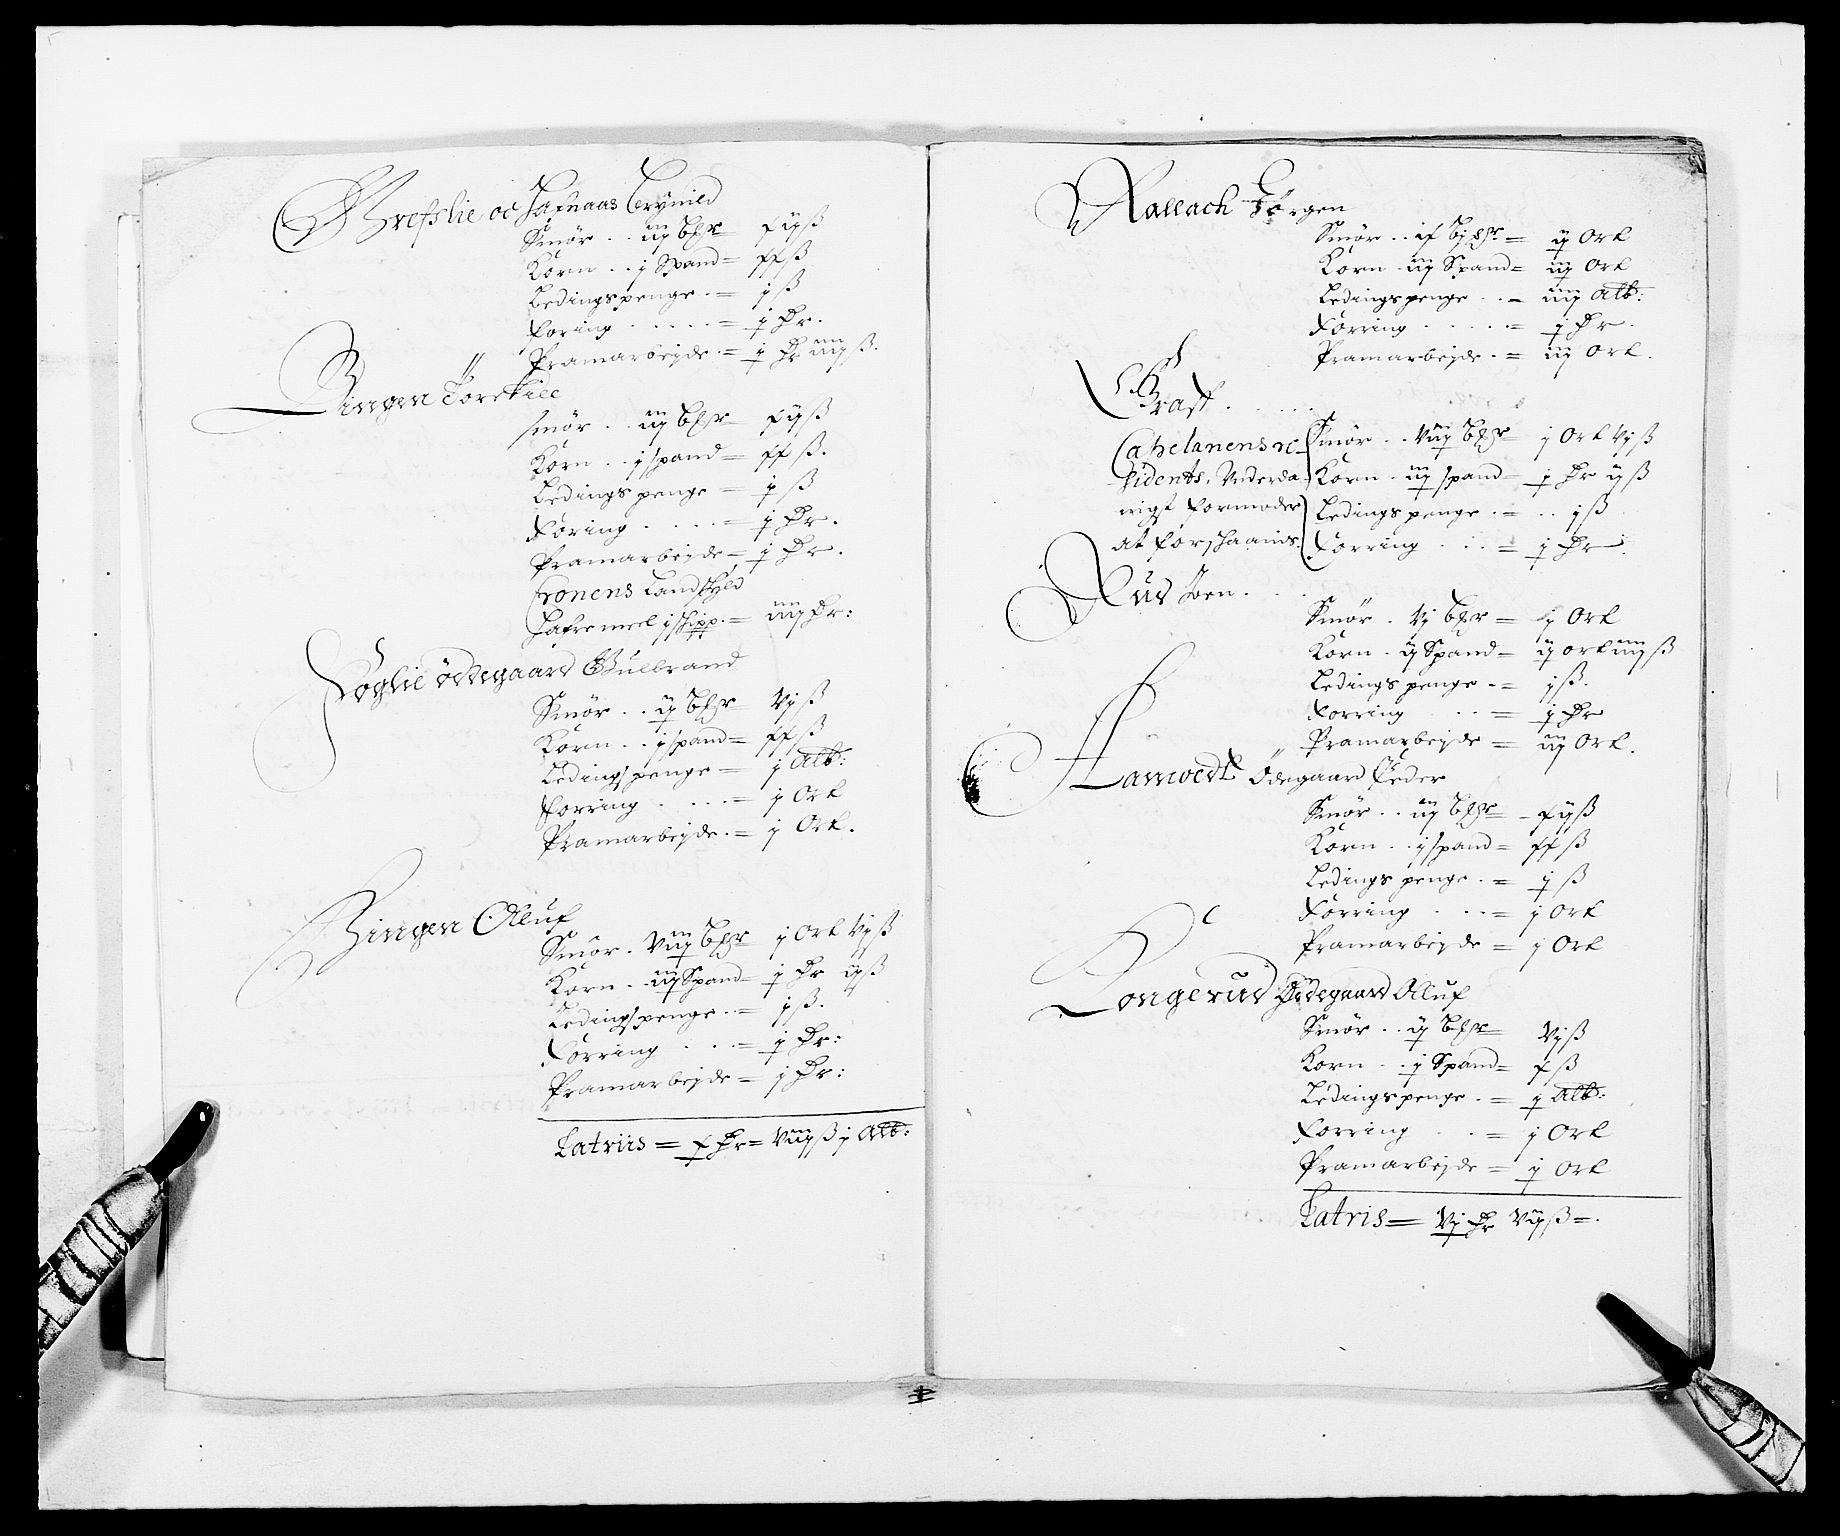 Grefslie oc Hafnaas Brynild
Smør . . iiij bpr xijß
Korn . . j Spand = xxß
Ledingspenge . = jß
Foring . . . . . = j Dr.
Pramarbejde . = j Dr iiijß.
Ringen Torekill
Smør . . iiij bpr xijß
Korn . . j spand = xxß.
Ledingspenge = jß
Føring . . . . = j Dr.
Pramarbejde = j Dr.
Cronens Landskyld
Hafremeel j skipp. = iiij Dr:
Foglie ødegaard Gulbrand
Smør . . ij bpr Vjß
Korn . . j spand = xxß
Ledingspenge = j Alb:
Forring . . . . = j Ort
Pramarbejde . = j Ort.
Ringen Olluf
Smør . Viij bpr j Ort Vjß
Korn . . iij Spand = j Dr ijß
Ledingspenge . = jß.
Forring . . . = j Dr:
Pramarbejde = j Dr:
Latriis = x Dr = Viijß j Alb:
Rallach Jørgen
Smør . . = ij Ort
Korn . iiij Spand = iij Ort
Ledingspenge . . = iiij Alb:
Forring . . . . . = j Dr.
Pramarbejde . = iij Ort.
Graff . . . . .
Capelanens re- Smør . . Viij bpr j Ort Vjß
sidents, Korn . iij spand = j Dr ijß
Formoder Ledingspenge . = . . jß
at Forring . . = j Dr.
Rud Joen . . .
Smør . Vj bpr = j Ort
Korn . ij Spand = ij ort iiijß
Ledingspenge . = jß.
Forring . . = j Dr
Pramarbejde = iij Ort.
Ødegaard Peder
Smør . . iiij bpr - xijß
Korn . . j spand = xxß
Ledingspenge . = jß
Forring . . . = j Ort
Pramarbejde = j Ort
Longerud Ødegaard Olluf
Smør . . ij bpr Vjß
Korn . . j Spand = xß
Ledingspenge . = j Alb:
Forring . . = j Ort
Pramarbejde = j Ort
Latris = Vj Dr Vijß = .